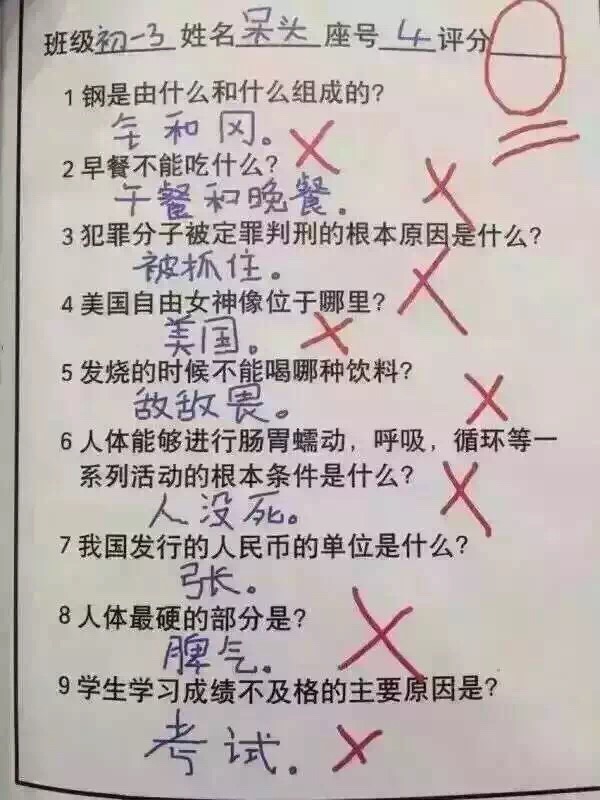 班级初一3姓名呆头座号4评分0
1 钢是由什么和什么组成的?
钅和冈。
2 早餐不能吃什么?
午餐和晚餐.
3 犯罪分子被定罪判刑的根本原因是什么?
被抓住。
4 美国自由女神像位于哪里?
美国。
5 发烧的时候不能喝哪种饮料?
敌敌畏。
6 人体能够进行肠胃蠕动，呼吸，循环等一
系列活动的根本条件是什么?
人没死。
7 我国发行的人民币的单位是什么?
张。
8 人体最硬的部分是?
脾气.
9 学生学习成绩不及格的主要原因是?
考试.